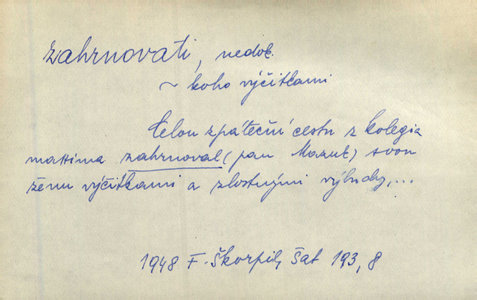 zahrnovati, nedok.
~ koho výčitkami
Celou zpáteční cestu z kolegia
maxima zahrnoval (pan Mazut) svou
ženu výčitkami a zlostnými výbuchy,...
1948 F. Škorpil, Šat 193, 8